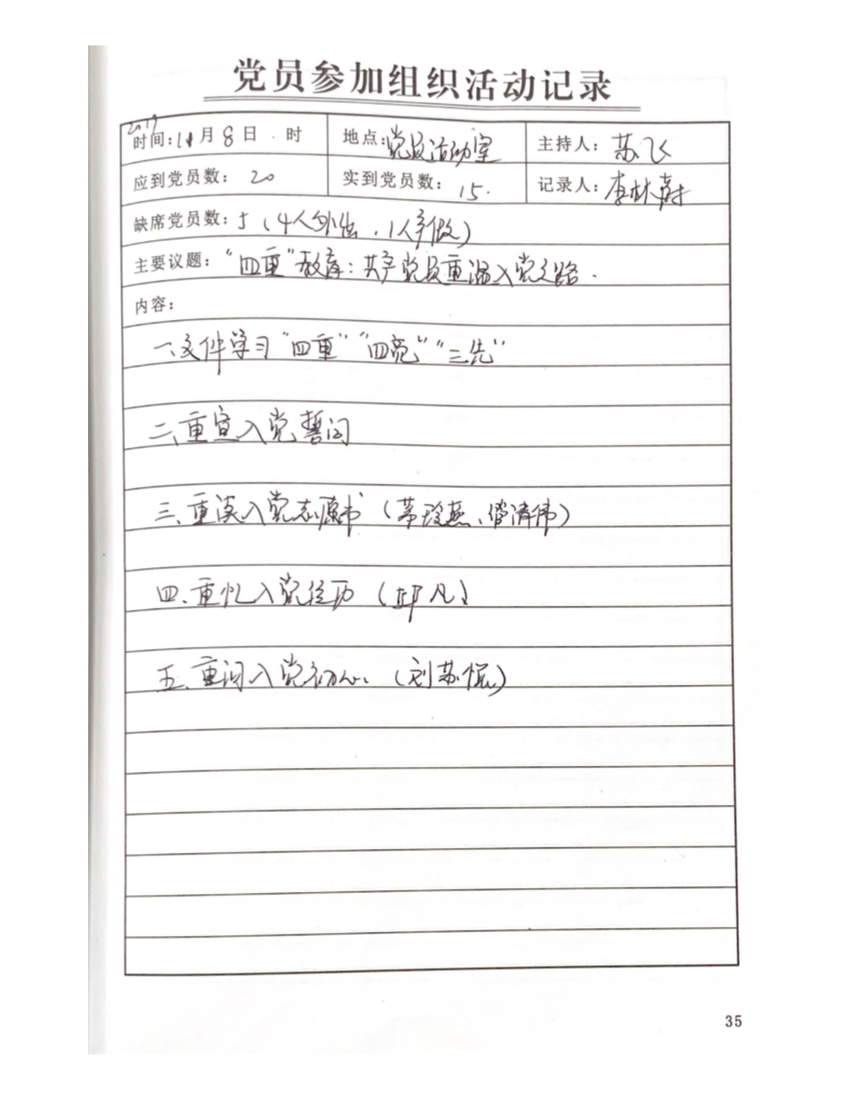 党员参加组织活动记录
2017
时间: 月8日 时 地点:党员活动室 主持人:苏飞
应到党员数: 20 实到党员数: 15. 记录人:李林蔚
缺席党员数:5(4人外出,1人 )
主要议题:“四重”教育:共产党员重温入党之路.
内容:
一、文件学习“四重”“四亮”“三先”
二、重宣入党誓词
三、重读入党志愿书(燕、 清伟)
四、重忆入党经历(邱凡)
五、重问入党初心.(刘苏 )
35